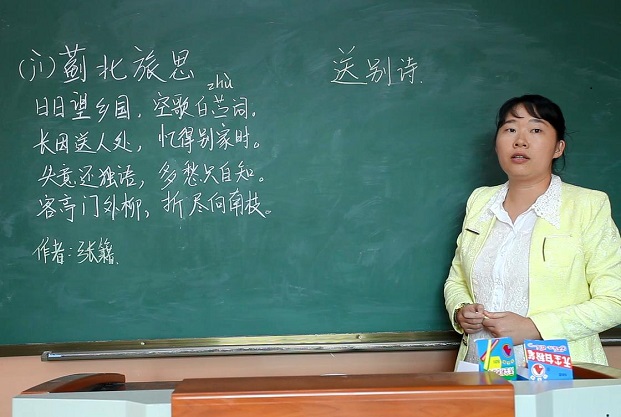 (川)蓟北旅思
送别诗.
zhù
日日望乡国，空歌白苎词。
长因送人处，忆得别家时。
失意还独语，多愁只自知。
客亭门外柳，折尽向南枝。
作者:张籍